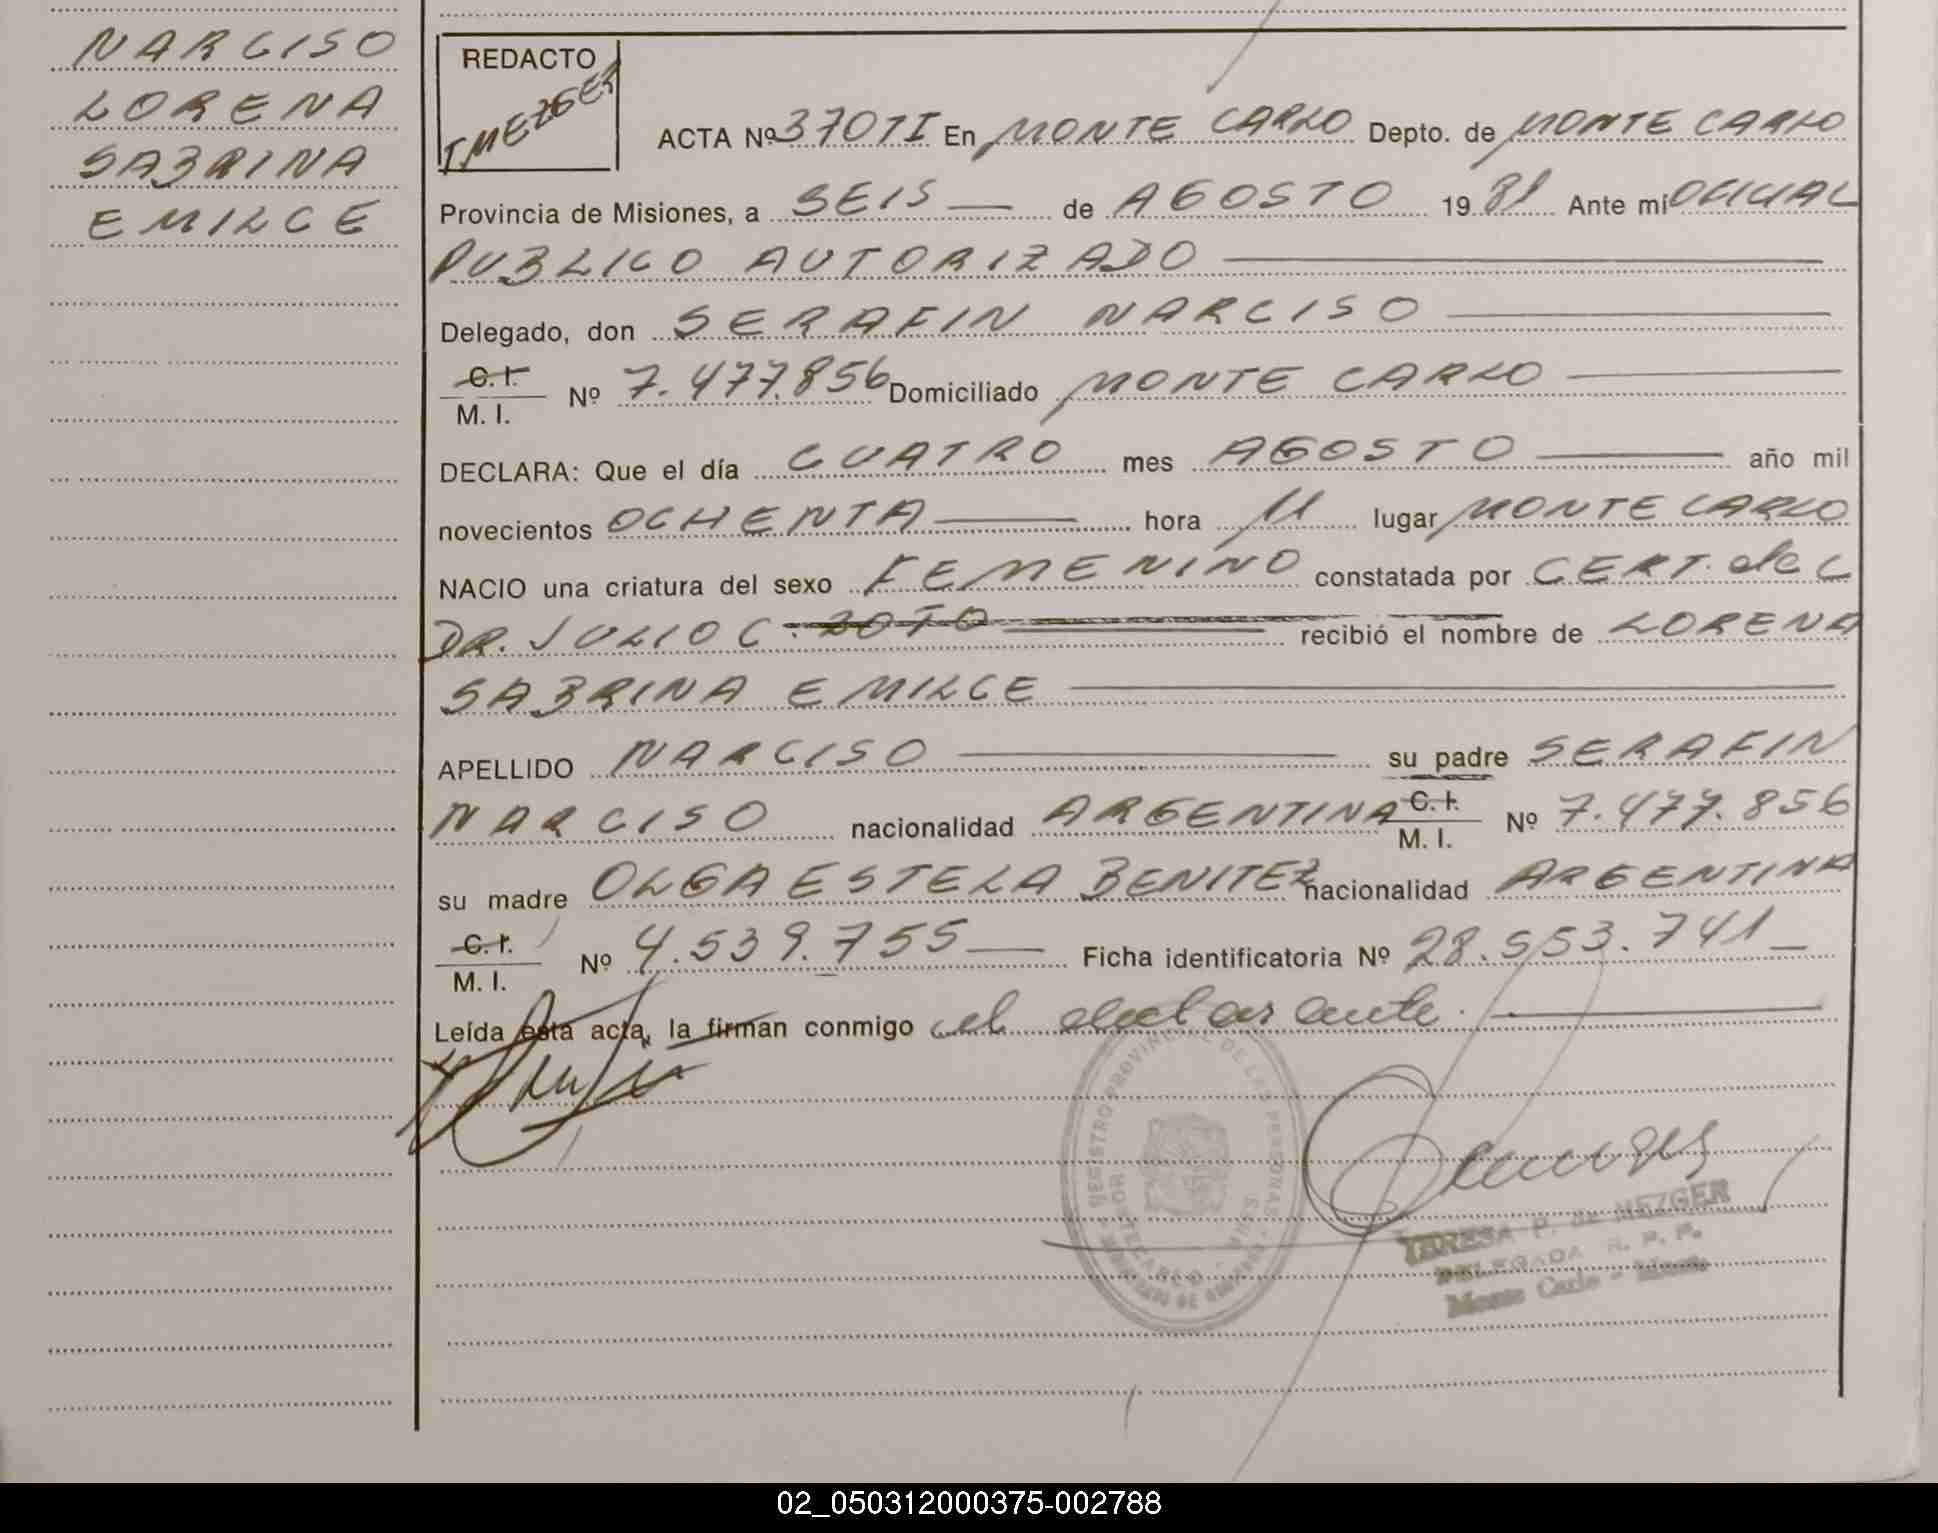 NARCISO
LORENA
SABRINA
EMILCE
REDACTO
TMEZGER
ACTA Nº 370TI En MONTE CARLO Depto. de MONTE CARLO
Provincia de Misiones, a SEIS de AGOSTO 1981 Ante mí OFICIAL
PUBLICO AUTORIZADO
Delegado, don SERAFIN NARCISO
C. I.
M. I. Nº 7.477.856 Domiciliado MONTE CARLO
DECLARA: Que el día CUATRO mes AGOSTO año mil
novecientos OCHENTA hora 11 lugar MONTE CARLO
NACIO una criatura del sexo FEMENINO constatada por CERT. del
DR. JULIO C. SOTO recibió el nombre de LORENA
SABRINA EMILCE
APELLIDO NARCISO su padre SERAFIN
NARCISO nacionalidad ARGENTINA C. I. M. I. Nº 7.477.856
su madre OLGA ESTELA BENITEZ nacionalidad ARGENTINA
C. I.
M. I. Nº 4.539.755 Ficha identificatoria Nº 28.553.741
Leída esta acta, la firman conmigo el declarante.
REGISTRO PROVINCIAL DE LAS PERSONAS
TERESA P. de MEZGER
DELEGADA R. P. P.
Monte Carlo - Mnes.
02_050312000375-002788